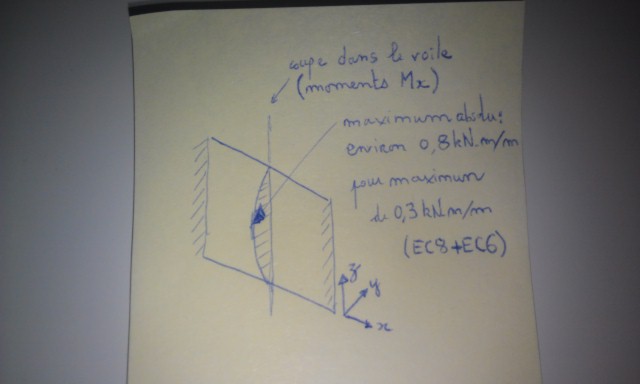 coupe dans le voile
(moments Mx)
maximum absolu :
environ 0,8 kN.m/m
pour maximum
de 0,3 kN.m/m
(EC8+EC6)
z
y
x